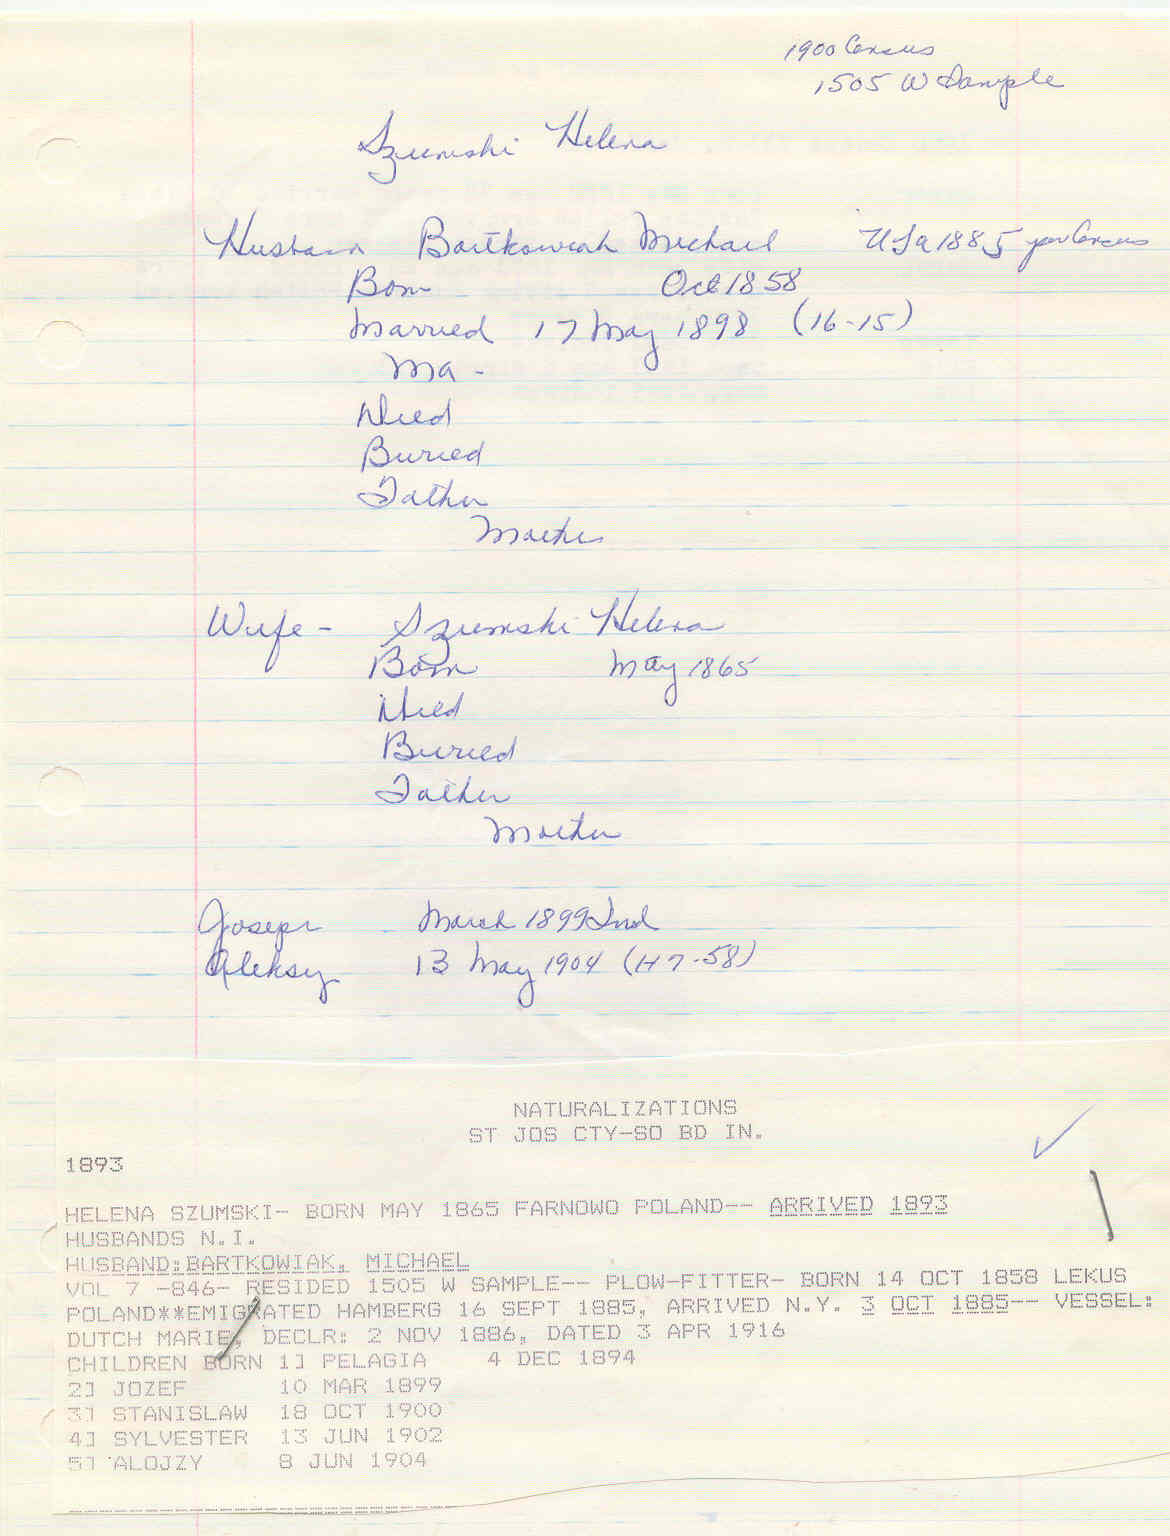 1900 Census
1505 W Sample
Szumski Helena
Husban Bartkowiak Michael USA 1885 per Census
Born Oct 1858
Married 17 May 1898 (16-15)
Ma -
Died
Buried
Father
Mother
Wife - Szumski Helena
Born May 1865
Died
Buried
Father
Mother
Joseph March 1899 Ind
Aleksy 13 May 1904 (H7-58)
NATURALIZATIONS
ST JOS CTY-SO BD IN.
1893
HELENA SZUMSKI- BORN MAY 1865 FARNOWO POLAND-- ARRIVED 1893
HUSBANDS N.I.
HUSBAND:BARTKOWIAK, MICHAEL
VOL 7 -846- RESIDED 1505 W SAMPLE-- PLOW-FITTER- BORN 14 OCT 1858 LEKUS
POLAND**EMIGRATED HAMBERG 16 SEPT 1885, ARRIVED N.Y. 3 OCT 1885-- VESSEL:
DUTCH MARIE, DECLR: 2 NOV 1886, DATED 3 APR 1916
CHILDREN BORN 1] PELAGIA 4 DEC 1894
2] JOZEF 10 MAR 1899
3] STANISLAW 18 OCT 1900
4] SYLVESTER 13 JUN 1902
5] ALOJZY 8 JUN 1904